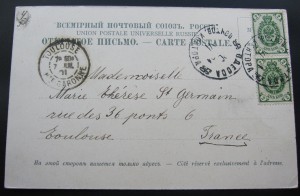 ВСЕМІРНЫЙ ПОЧТОВЫЙ СОЮЗЪ. РОССІЯ.
UNION POSTALE UNIVERSELLE. RUSSIE.
ОТКРЫТОЕ ПИСЬМО. — CARTE POSTALE.
TOULOUSE
Hte GARONNE
Mademoiselle
Marie Thérèse St Germain
rue des 36 ponts 6
Toulouse
France
На этой сторонѣ пишется только адресъ. — Côté réservé exclusivement à l'adresse.